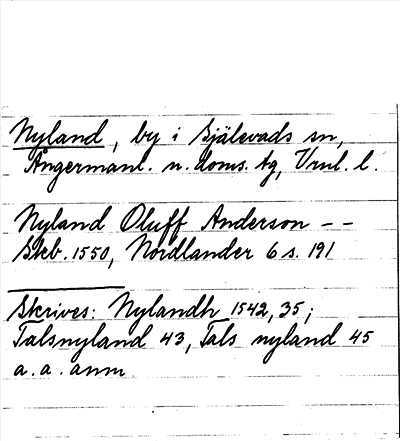 Nyland, by i Själevads sn,
Ångermanl. n. doms. tg, Vrnl. l.
Nyland Oluff Anderson – –
Skb. 1550, Nordlander 6 s. 191
Skrives: Nylandh 1542, 35;
Talsnyland 43, Tals nyland 45
a. a. anm